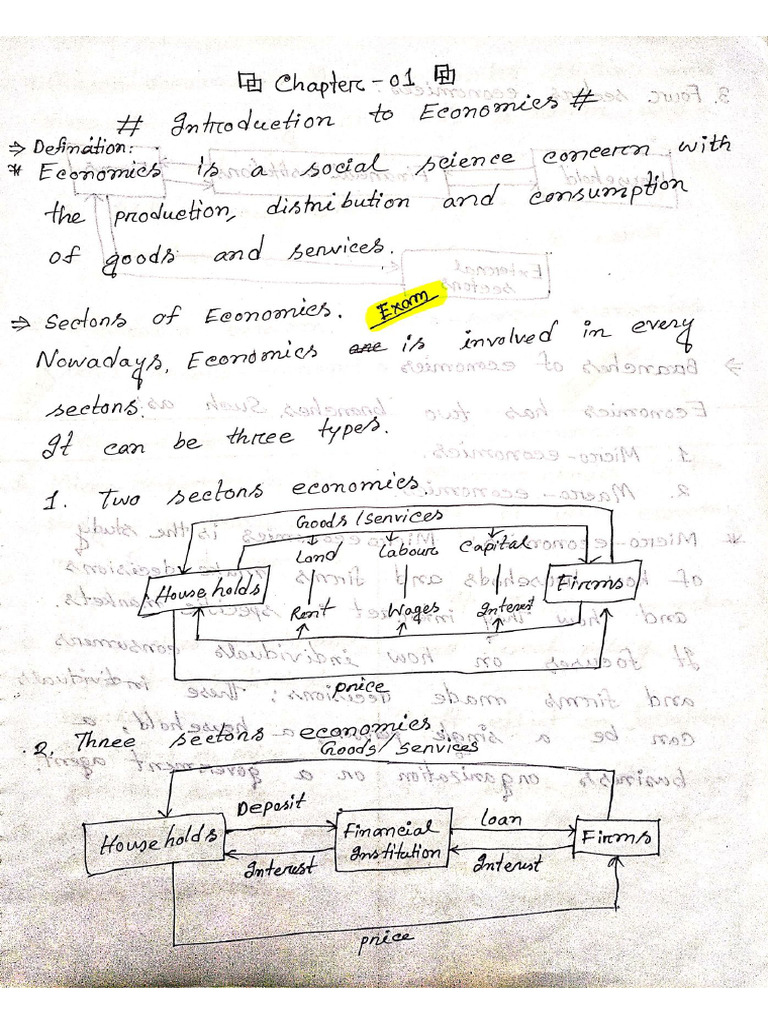 Chapter - 01
# Introduction to Economics #
⇒ Defination:
* Economics is a social science concern with
the production, distribution and consumption
of goods and services.
⇒ Sectors of Economics. Exam
Nowadays, Economics are is involved in every
sectors.
It can be three types.
1. Two sectors economies
Goods/services
Land Labour Capital
Households Firms
Rent Wages Interest
price
2. Three sectors economies
Goods/services
Deposit Loan
Households Financial Institution Firms
Interest Interest
price